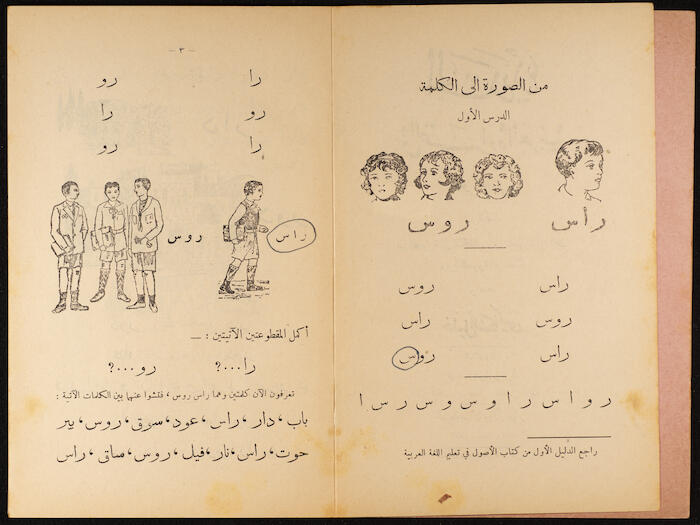 من الصورة الى الكلمة
الدرس الأول
رأس روس
راس روس
روس راس
راس روس
ر و ا س ر ا و س و س ر س ا
راجع الدليل الأول من كتاب الأصول في تعليم اللغة العربية
— ٣ —
را رو
رو را
را رو
راس روس
أكمل المقطوعتين الآتيتين : —
را...؟ رو...؟
تعرفون الآن كلمتين وهما راس روس ، فتشوا عنهما بين الكلمات الآتية :
باب، دار، راس، عود، سوق، روس، بير
حوت، راس، نار، فيل، روس، ساقى، راس